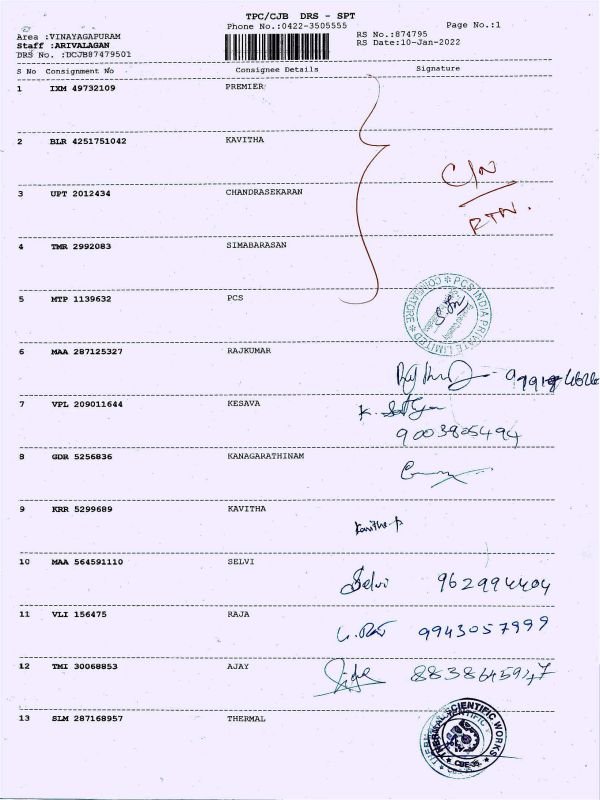 TPC/CJB DRS - SPT
Phone No.:0422-3505555 Page No.:1
Area :VINAYAGAPURAM RS No.:874795
Staff :ARIVALAGAN RS Date:10-Jan-2022
DRS No. :DCJB87479501
S No Consignment No Consignee Details Signature
1 IXM 49732109 PREMIER
2 BLR 4251751042 KAVITHA
C/N
3 UPT 2012434 CHANDRASEKARAN
RTN.
4 TMR 2992083 SIMABARASAN
5 MTP 1139632 PCS
PCS INDIA PRIVATE LIMITED * COIMBATORE *
6 MAA 287125327 RAJKUMAR
7 VPL 209011644 KESAVA
9003805494
8 GDR 5256836 KANAGARATHINAM
9 KRR 5299689 KAVITHA
Kavitha P
10 MAA 564591110 SELVI
Selvi 9629944404
11 VLI 156475 RAJA
9943057999
12 TMI 30068853 AJAY
8838645947
13 SLM 287168957 THERMAL
THERMAL SCIENTIFIC WORKS
CBE-35.